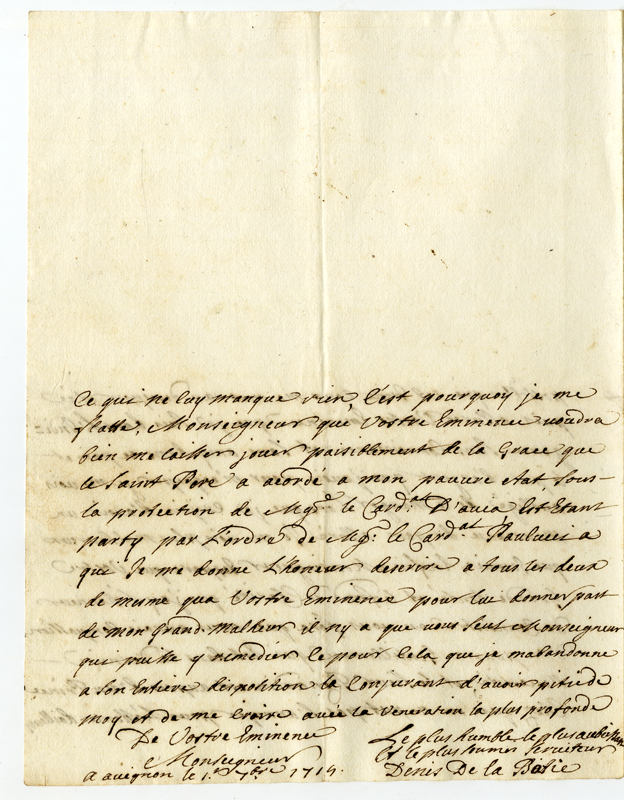 Ce qui ne luy manque rien, C'est pourquoy je me
flatte, Monseigneur que Vostre Eminence voudra
bien me laisser jouir paisiblement de la Grace que
le Saint Pere a acordé a mon pauvre etat sous-
la protection de Mgr. le Card.al D'avia Est Etant
party par l'ordre de Mgr. le Card.al Paulucci a
qui Je me donne L'honeur descrire a tous les deux
de mesme qua Vostre Eminence pour lui donner part
de mon Grand Malheur il ny a que vous seul Monseigneur
qui puisse y remedier Ce pour Cela que je mabandonne
a son Entiere disposition la Conjurant d'avoir pitié de
moy et de me Croire avec la veneration la plus profonde
De Vostre Eminence
Monseigneur
a avignon le 1.er 7bre 1714.
Le plus humble le plus
Et le plus soumis Serviteur
Denis De la